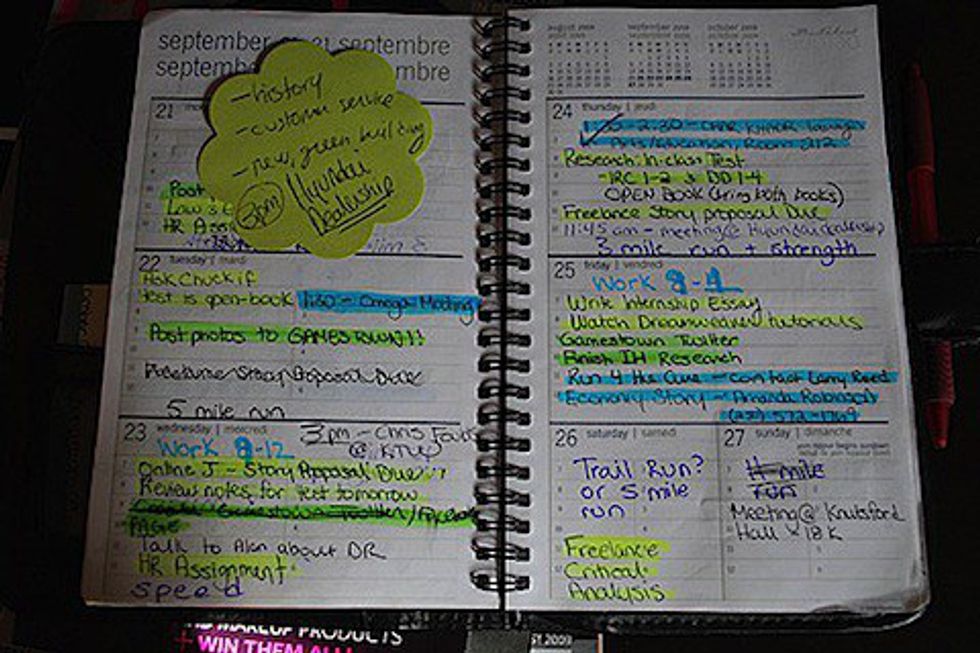 september
septembre
septem
mbre
- history
- customer service
- new, green building
3pm Hyundai
Dealership
21
Post
Law
HR Assi
22 tuesday | mardi
Ask Chuck if
test is open-book
1:30 - Omega Meeting
Post photos to GAMESTOWN!!
Freelance Story Proposal Due
5 mile run
23 wednesday | mercredi
3pm - Chris
Work 9-12
Online J - Story Proposal Due
Review notes for test tomorrow
Gamestown Twitter/Facebook
PAGE
Talk to Alan about DR
HR Assignment
speed
august 2009
september 2009
october 2009
24 thursday | jeudi
1:30-2:30
Arts/Education, Room
Research: In-class Test
- IRC 1-2 & DD 1-4
OPEN BOOK (bring both books)
Freelance Story proposal Due
11:45 am - meeting @ Hyundai dealership
3 mile run + strength
25 friday | vendredi
Work
Write Internship Essay
Watch Dreamweaver tutorials
Gamestown Twitter
Finish IH Research
Run 4 the Cure - contact Larry Reed
Economy Story - Amanda Robinson
26 saturday | samedi
Trail Run?
or 5 mile
run
Freelance
Critical
Analysis
27 sunday | dimanche
mile
run
Meeting @ Knutsford
Hall x 18k
MAKEUP PRODUCTS
+ WIN THEM ALL!
31, 2009